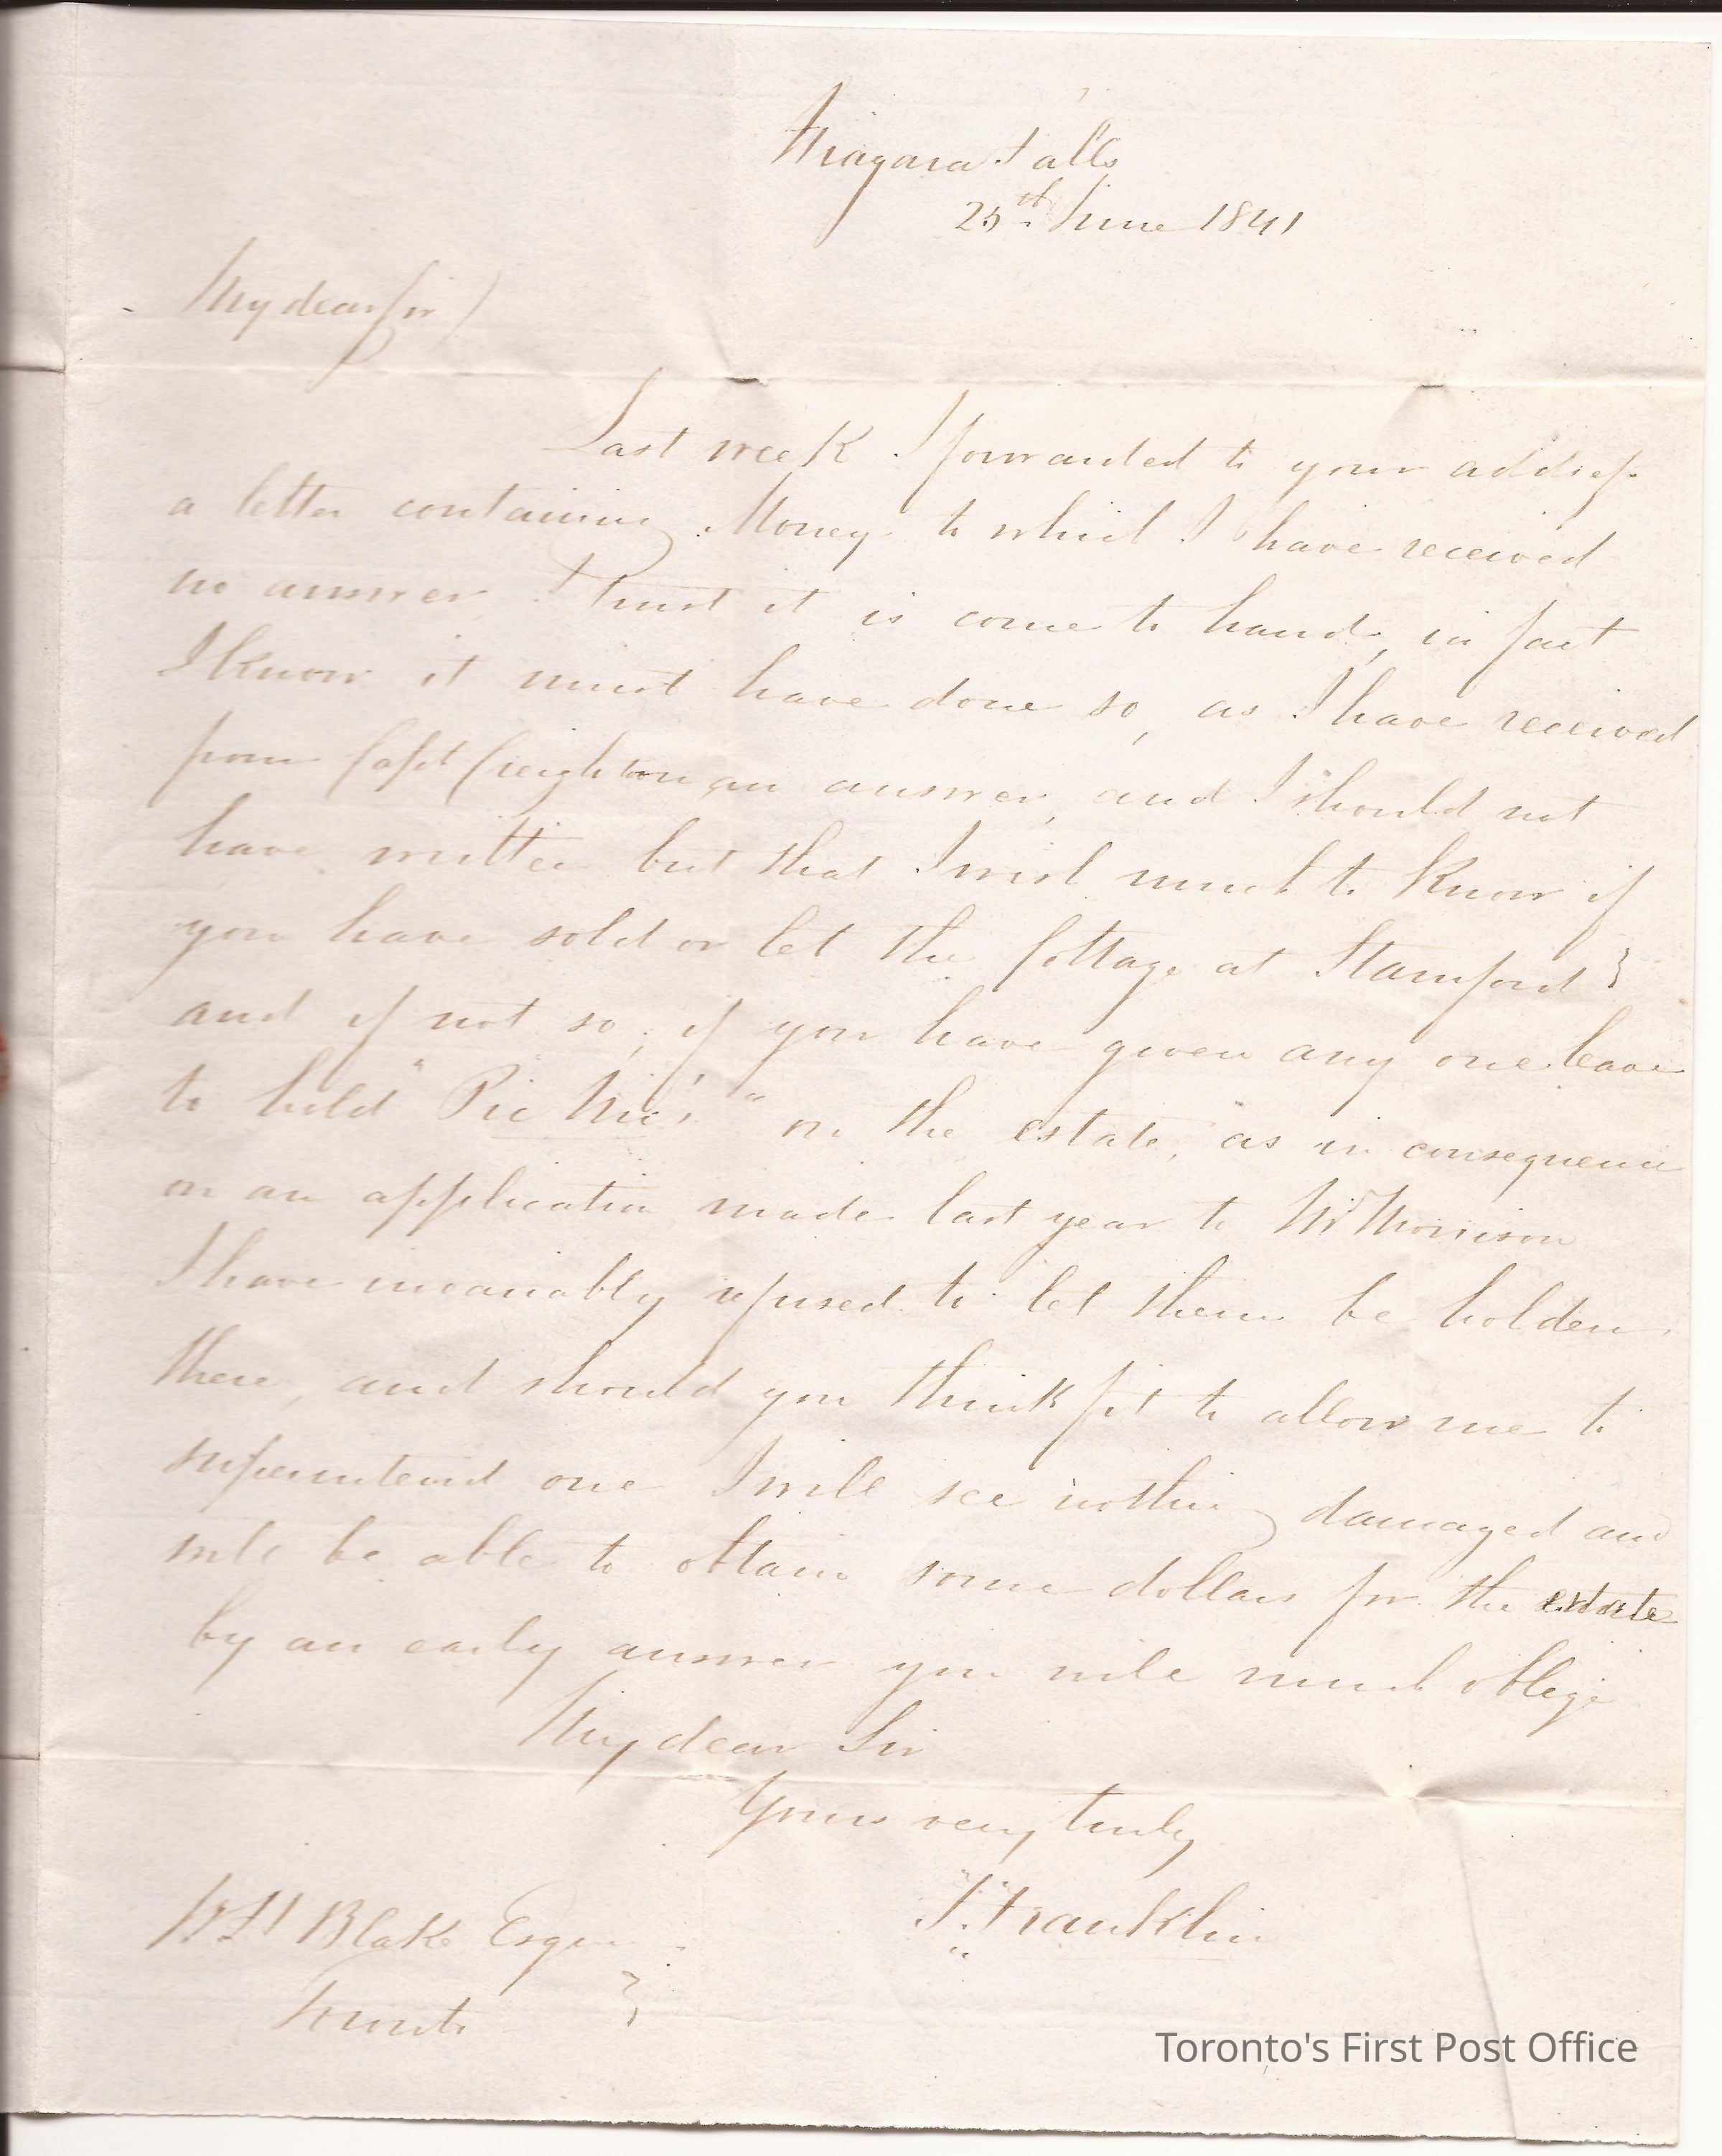 Niagara Falls
25th June 1841
My dear Sir
Last week I forwarded to your address
a letter containing Money to which I have received
no answer, I trust it is come to hand, in fact
I know it must have done so, as I have received
from Capt Creighton an answer, and I should not
have written but that I wish much to know if
you have sold or let the Cottage at Stamford
and if not so, if you have given any one leave
to hold "Pic Nic's" on the estate, as in consequence
on an application made last year to Mr Morrison
I have invariably refused to let them be holden
there, and should you think fit to allow me to
superintend one I will see nothing damaged and
will be able to obtain some dollars for the estate
by an early answer you will much oblige
My dear Sir
Yours very truly
Franklin
Blake Esqre
Toronto
Toronto's First Post Office